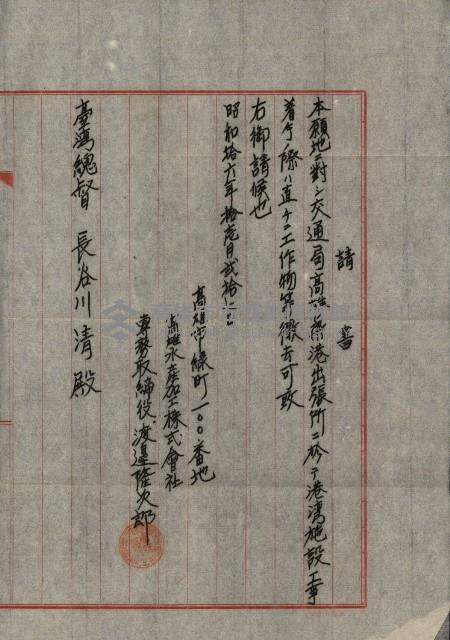 請書
本願地ニ對シ交通局高雄築港出張所ニ於テ港灣施設工事
着手ノ際ハ直チニ工作物等撤去可致
右御請候也
昭和拾六年拾壱月貳拾
高雄市綠町一〇〇番地
高雄水産加工株式會社
專務取締役 渡邊隆次郎
臺灣總督 長谷川清殿